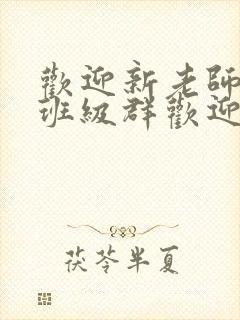 歡迎新老師
班級群歡迎
茯苓半夏